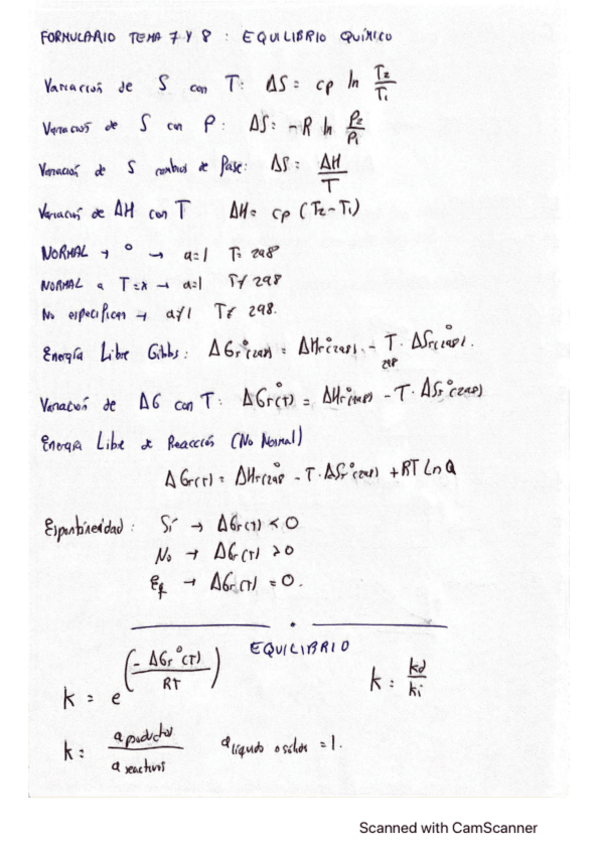 FORMULARIO TEMA 7 Y 8 : EQUILIBRIO QUÍMICO
Variación de S con T: ΔS = cp ln T2/T1
Variación de S con P: ΔS: -R ln P2/P1
Variación de S cambios de fase: ΔS: ΔH/T
Variación de ΔH con T ΔH= cp (T2-T1)
NORMAL → ° → a=1 T= 298
NORMAL a T=x → a=1 T≠ 298
No especifican → a≠1 T≠ 298.
Energía Libre Gibbs: ΔGr°(298) = ΔHr°(298) - T · ΔSr°(298).
298
Variación de ΔG con T: ΔGr°(T) = ΔHr°(298) - T· ΔSr°(298)
Energía Libre de Reacción (No Normal)
ΔGr(T) = ΔHr°(298 - T· ΔSr°(298) + RT Ln Q
Espontaneidad: Sí → ΔGr(T) < 0
No → ΔGr(T) > 0
Eq → ΔGr(T) = 0.
EQUILIBRIO
k = e^(-ΔGr°(T)/RT) k = kd/ki
k: a productos/a reactivos a líquido o sólido = 1.
Scanned with CamScanner